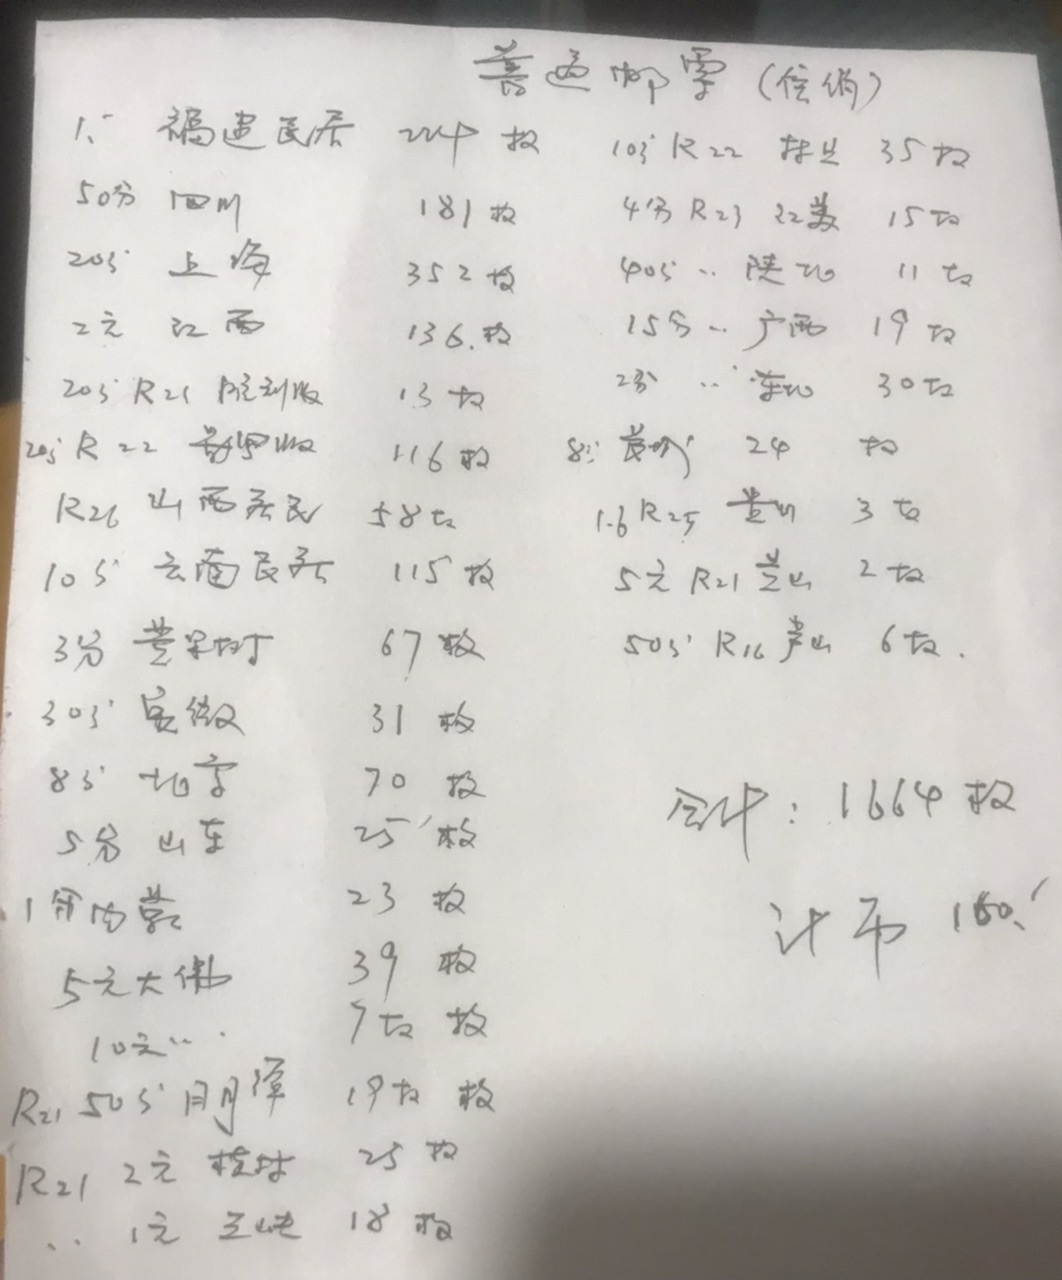 普通邮票(信销)
1.- 福建民居 224 枚
50分 四川 181 枚
20分 上海 352 枚
2元 江西 136.枚
20分 R21 影雕版 13 枚
20分 R22 影写版 116 枚
R26 山西居民 58 枚
10分 云南民居 115 枚
3分 黄果树 67 枚
30分 安徽 31 枚
8分 北京 70 枚
5分 山东 25 枚
1分内蒙 23 枚
5元大佛 39 枚
10元 .. 7枚 枚
R21 50分 日月潭 19枚 枚
R21 2元 桂林 25 枚
.. 1元 三峡 18 枚
10分 R22 35 枚
4分 R23 江苏 15 枚
40分 .. 陕北 11 枚
15分 .. 广西 19 枚
2分 .. 东北 30 枚
8分 24 枚
1.6 R25 3 枚
5元 R21 2 枚
50分 R16 6 枚.
合计: 1664 枚
计币 160.-